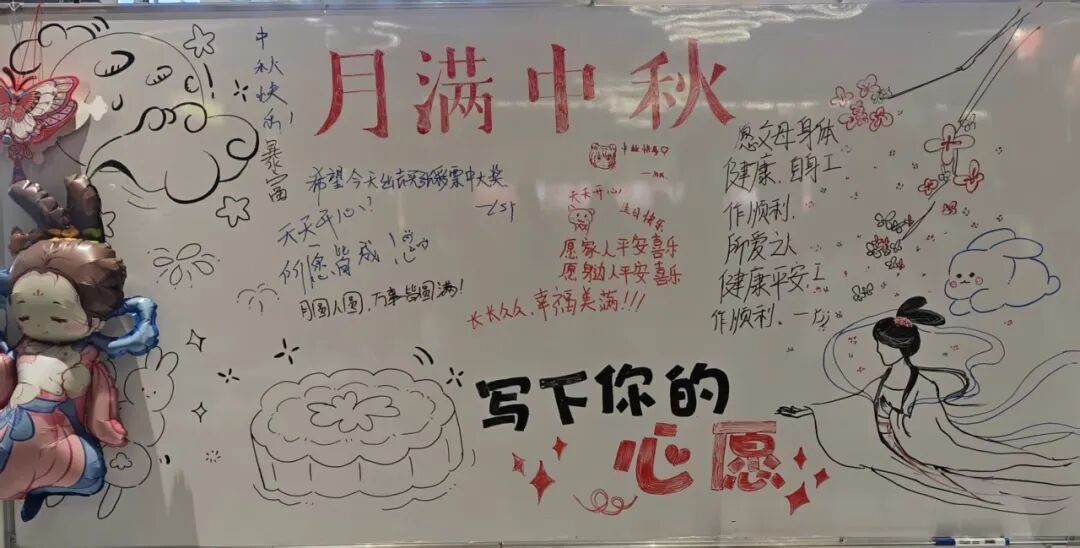 月满中秋
中秋快乐!
暴富
希望今天出去买张彩票中大奖
天天开心!
所愿皆成!
月圆人圆,万事皆圆满!
中秋快乐♡
天天开心
生日快乐
愿家人平安喜乐
愿身边人平安喜乐
长长久久,幸福美满!!!
愿父母身体
健康,自身工
作顺利.
所爱之人
健康平安工
作顺利.
写下你的
心愿